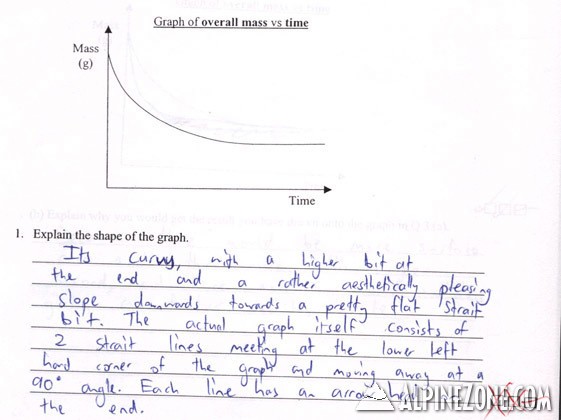 Graph of overall mass vs time
Mass
(g)
Time
1. Explain the shape of the graph.
Its curvy, with a higher bit at
the end and a rather aesthetically pleasing
slope downwards towards a pretty flat strait
bit. The actual graph itself consists of
2 strait lines meeting at the lower left
hand corner of the graph and moving away at a
90° angle. Each line has an arrow head at
the end.
ALPINEZONE.COM